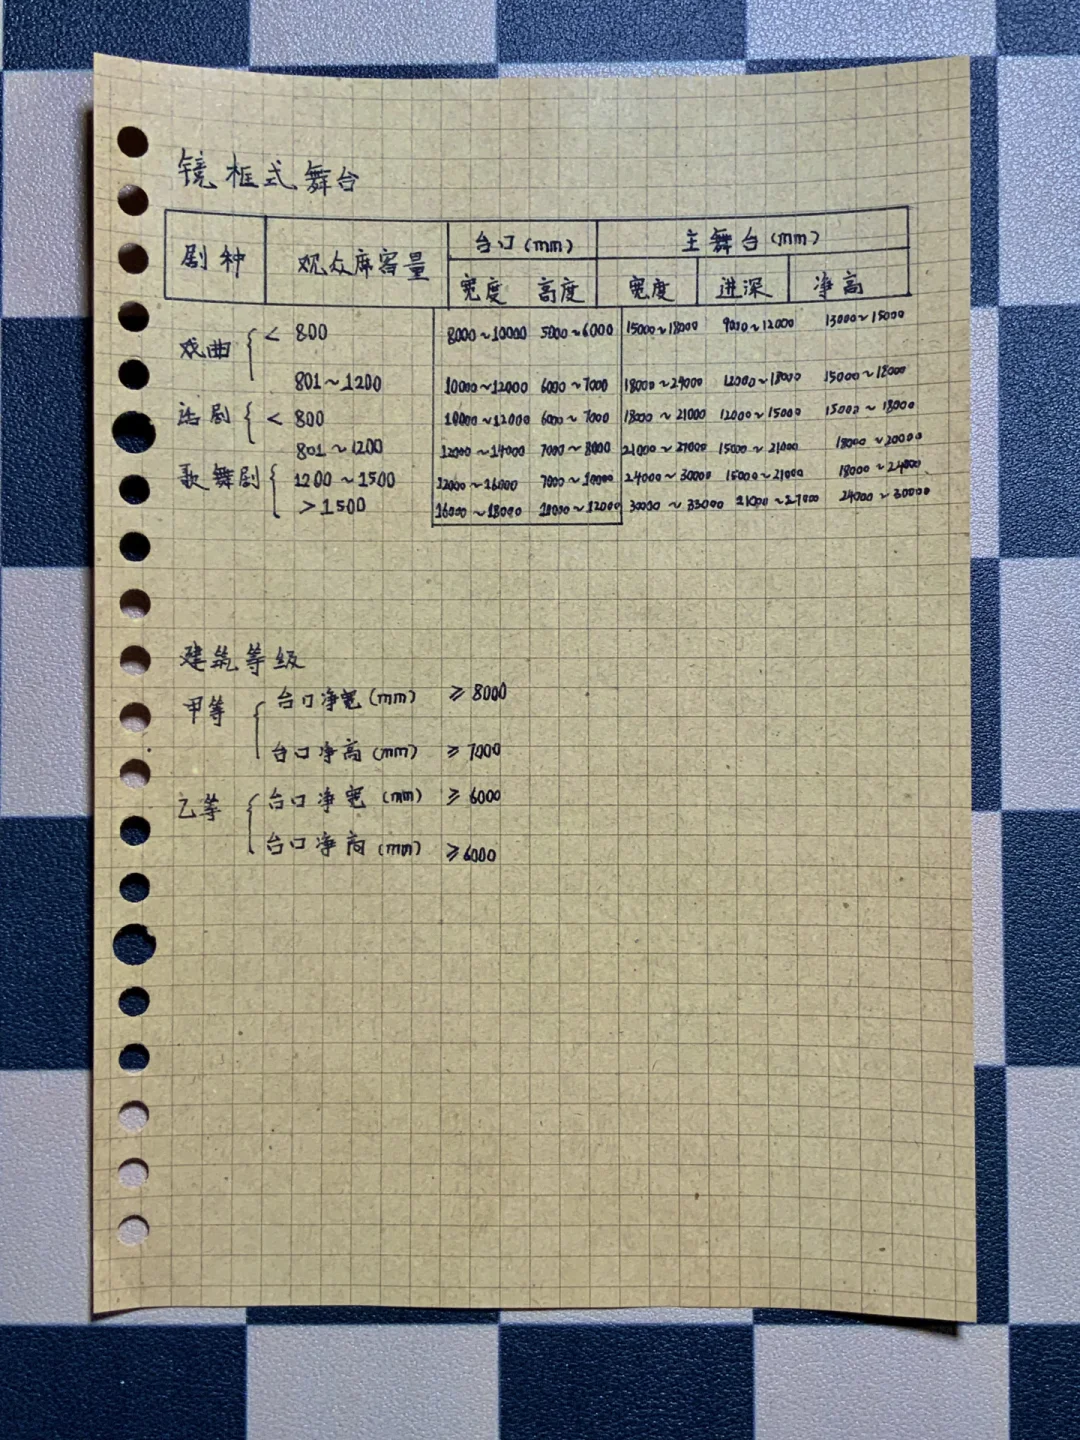 镜框式舞台
剧种 观众席容量 台口(mm) 主舞台(mm)
宽度 高度 宽度 进深 净高
戏曲 < 800 8000~10000 5000~6000 15000~18000 9000~12000 13000~15000
801~1200 10000~12000 6000~7000 18000~24000 12000~18000 15000~18000
话剧 < 800 10000~12000 6000~7000 18000~21000 12000~15000 15000~18000
801~1200 12000~14000 7000~8000 21000~27000 15000~21000 18000~20000
歌舞剧 1200~1500 12000~16000 7000~10000 24000~30000 15000~21000 18000~24000
>1500 16000~18000 10000~12000 30000~33000 21000~27000 24000~30000
建筑等级
甲等 台口净宽(mm) ≥8000
台口净高(mm) ≥7000
乙等 台口净宽(mm) ≥6000
台口净高(mm) ≥6000